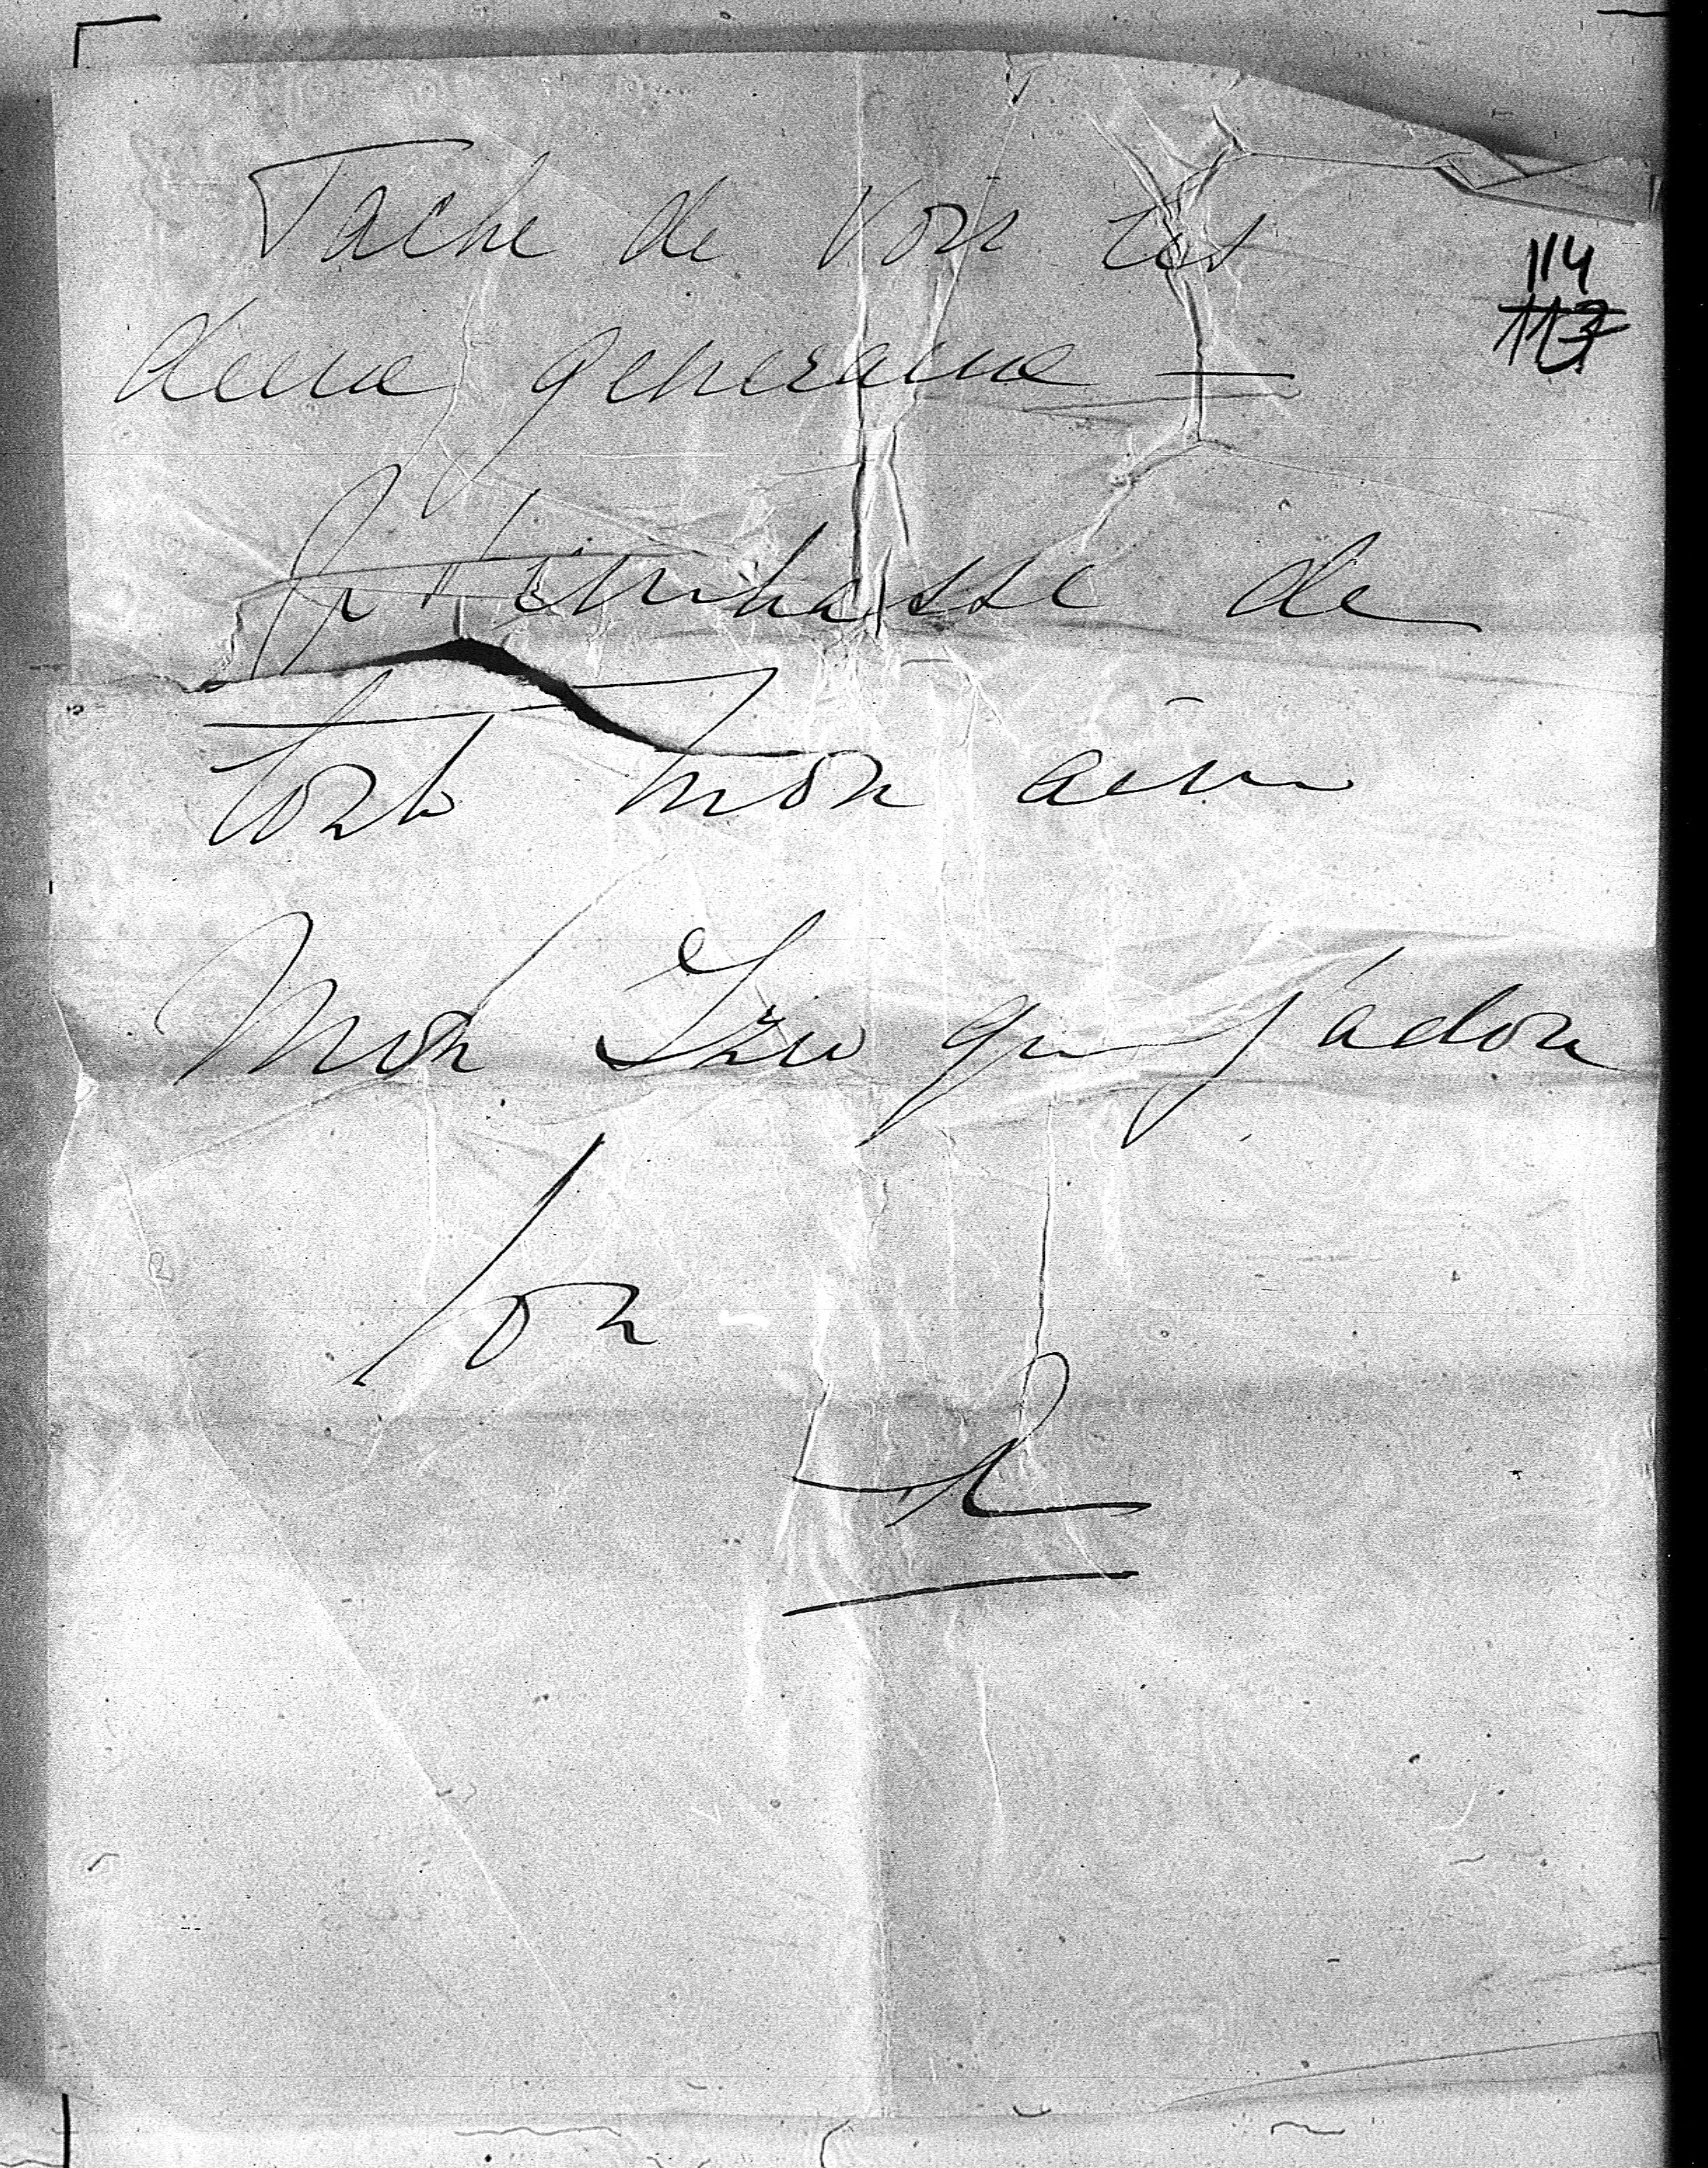 Tache de voir tes
deux generaux —
114
113
Je t'embrasse de
tout mon ame
Mon Izio que j'adore
Ton